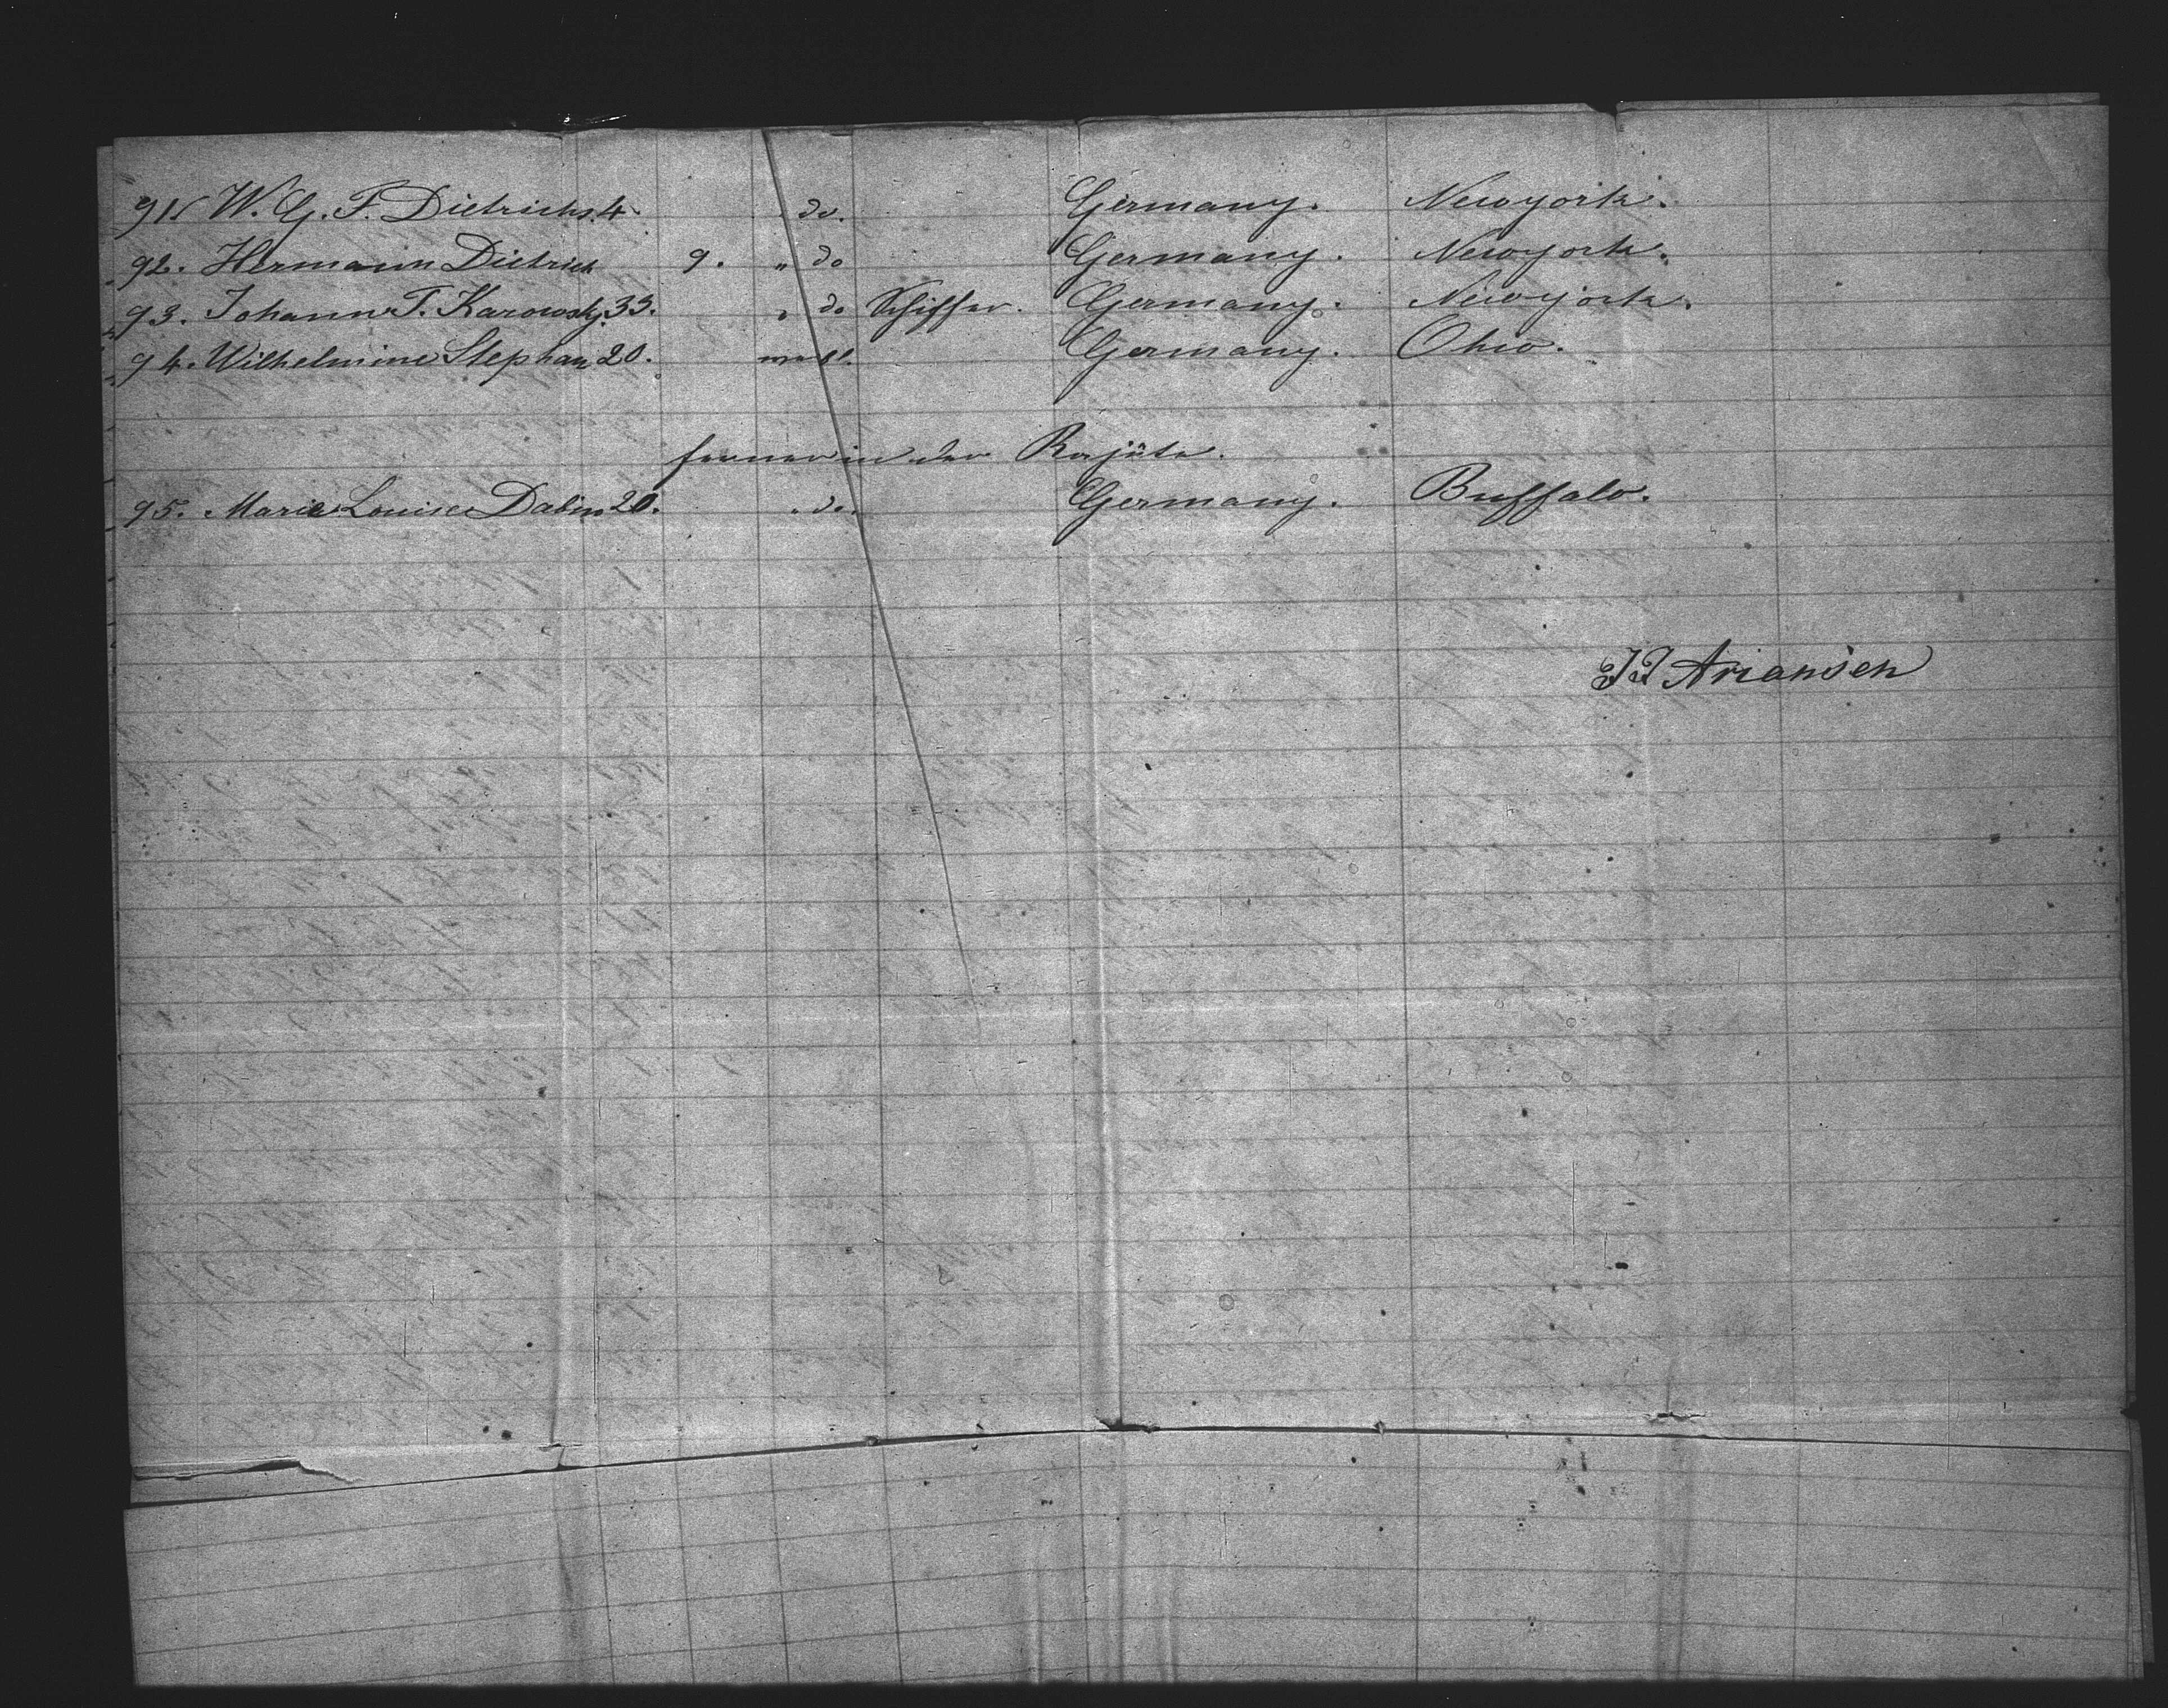 91. W. G. F. Dietrichs. 4. do. Germany. Newyork.
92. Hermann Dietrich 9. " do Germany. Newyork.
93. Johann T. Karowsky. 33. " do Schiffer. Germany. Newyork.
94. Wilhelmine Stephan 20. weibl. Germany. Ohio.
ferner in der Kajüte.
95. Marie Louise Dabin 20. " do. Germany. Buffalo.
J J Ariansen